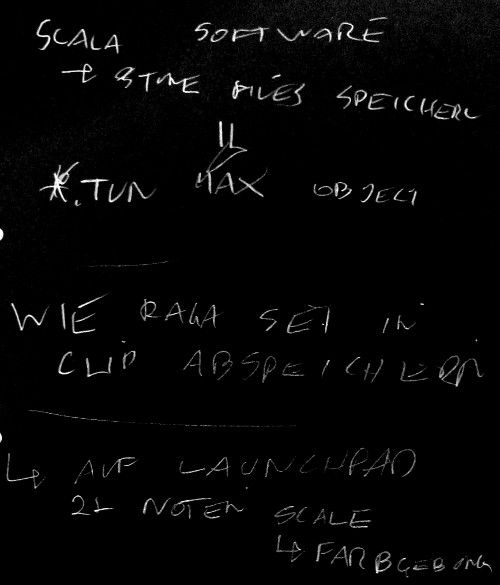 SCALA SOFTWARE
→ TUNE FILES SPEICHERN
*.TUN MAX OBJECT
WIE RAGA SET IN
CLIP ABSPEICHERN
↳ AUF LAUNCHPAD
21 NOTEN SCALE
↳ FARBGEBUNG